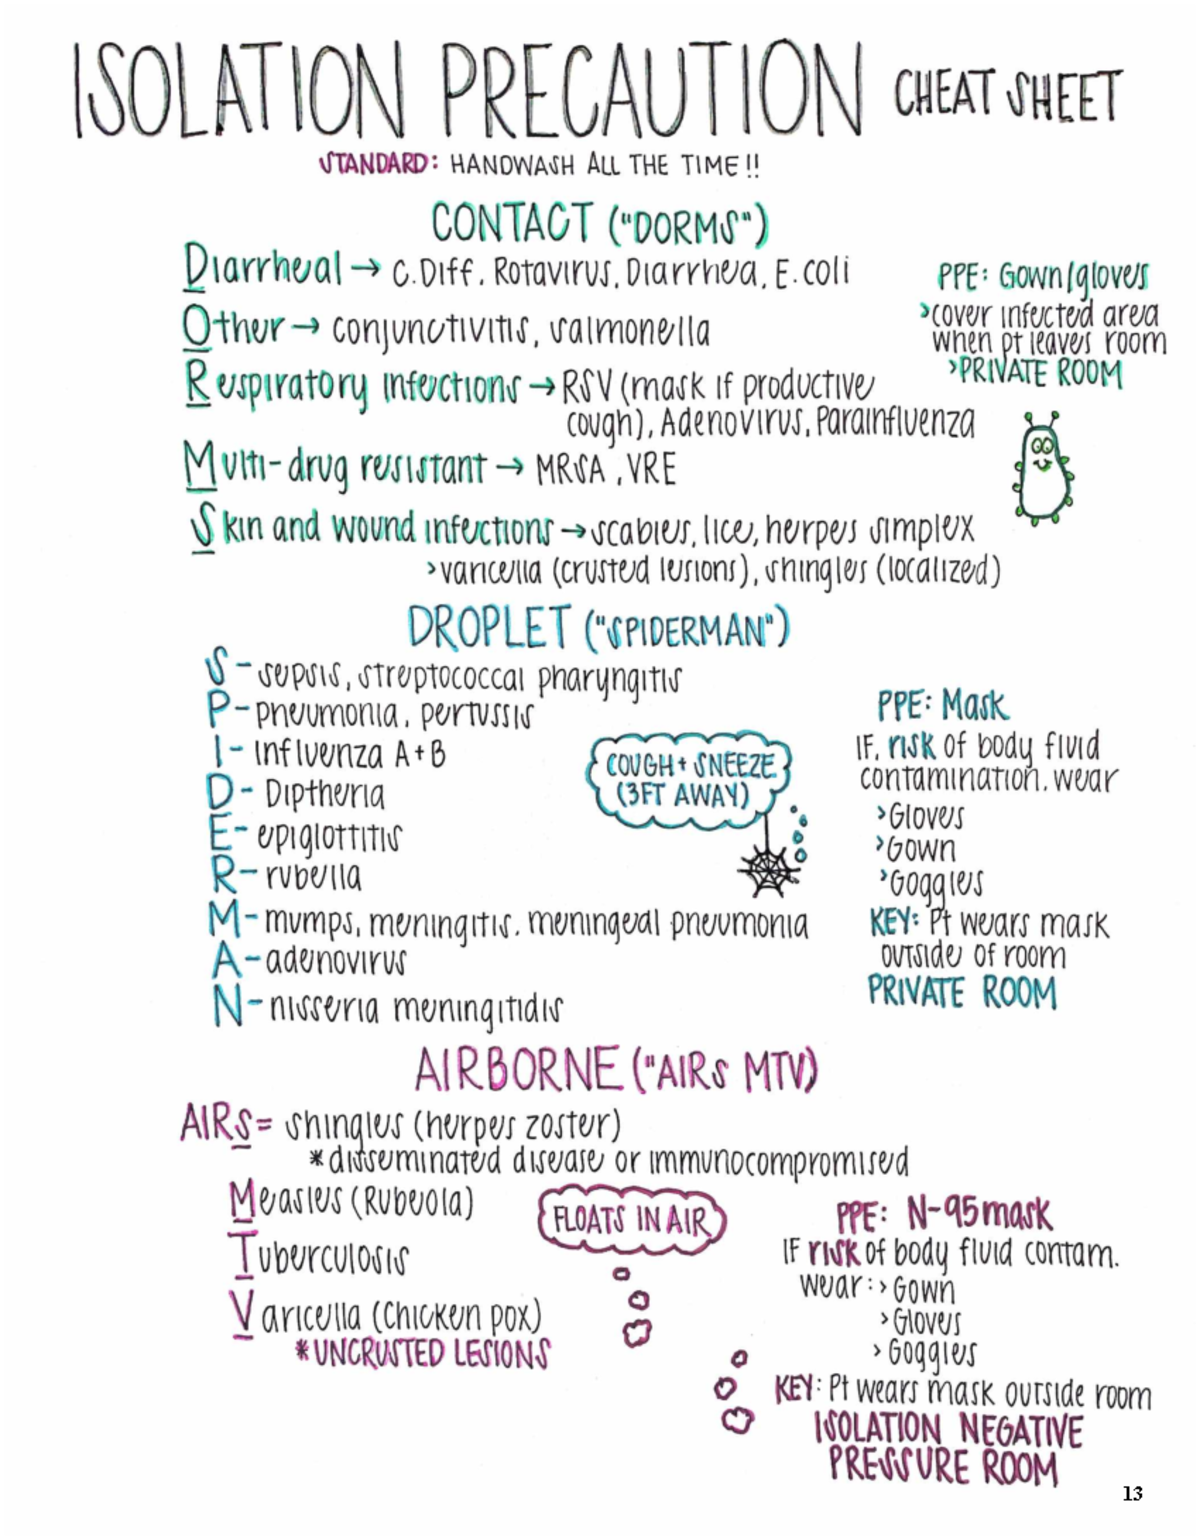 ISOLATION PRECAUTION CHEAT SHEET
STANDARD: HANDWASH ALL THE TIME!!
CONTACT ("DORMS")
Diarrheal → C. Diff, Rotavirus, Diarrhea, E. coli
Other → conjunctivitis, salmonella
Respiratory infections → RSV (mask if productive
cough), Adenovirus, Parainfluenza
Multi-drug resistant → MRSA, VRE
Skin and wound infections → scabies, lice, herpes simplex
>varicella (crusted lesions), shingles (localized)
PPE: Gown/gloves
>cover infected area
when pt leaves room
>PRIVATE ROOM
DROPLET ("SPIDERMAN")
S - sepsis, streptococcal pharyngitis
P - pneumonia, pertussis
I - Influenza A+B
D - Diptheria
E - epiglottitis
R - rubella
M - mumps, meningitis, meningeal pneumonia
A - adenovirus
N - nisseria meningitidis
COUGH + SNEEZE
(3FT AWAY)
PPE: Mask
IF, risk of body fluid
contamination, wear
>Gloves
>Gown
>Goggles
KEY: Pt wears mask
outside of room
PRIVATE ROOM
AIRBORNE ("AIRS MTV)
AIRS = shingles (herpes zoster)
*disseminated disease or immunocompromised
Measles (Rubeola)
Tuberculosis
Varicella (Chicken pox)
*UNCRUSTED LESIONS
FLOATS IN AIR
PPE: N-95 mask
IF risk of body fluid contam.
wear: > Gown
>Gloves
> Goggles
KEY: Pt wears mask outside room
ISOLATION NEGATIVE
PRESSURE ROOM
13